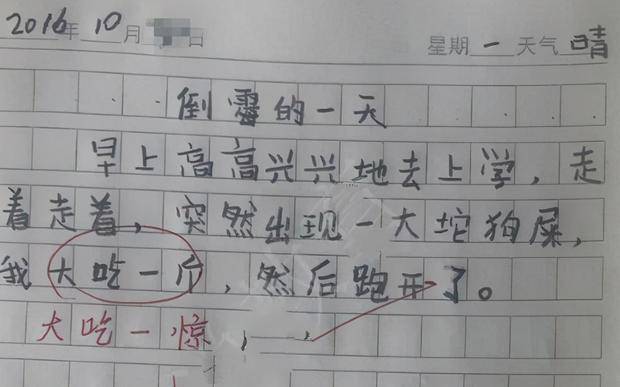 2016年 10月 日 星期一 天气 晴
倒霉的一天
早上高高兴兴地去上学，走
着走着，突然出现一大坨狗屎，
我大吃一斤，然后跑开了。
大吃一惊